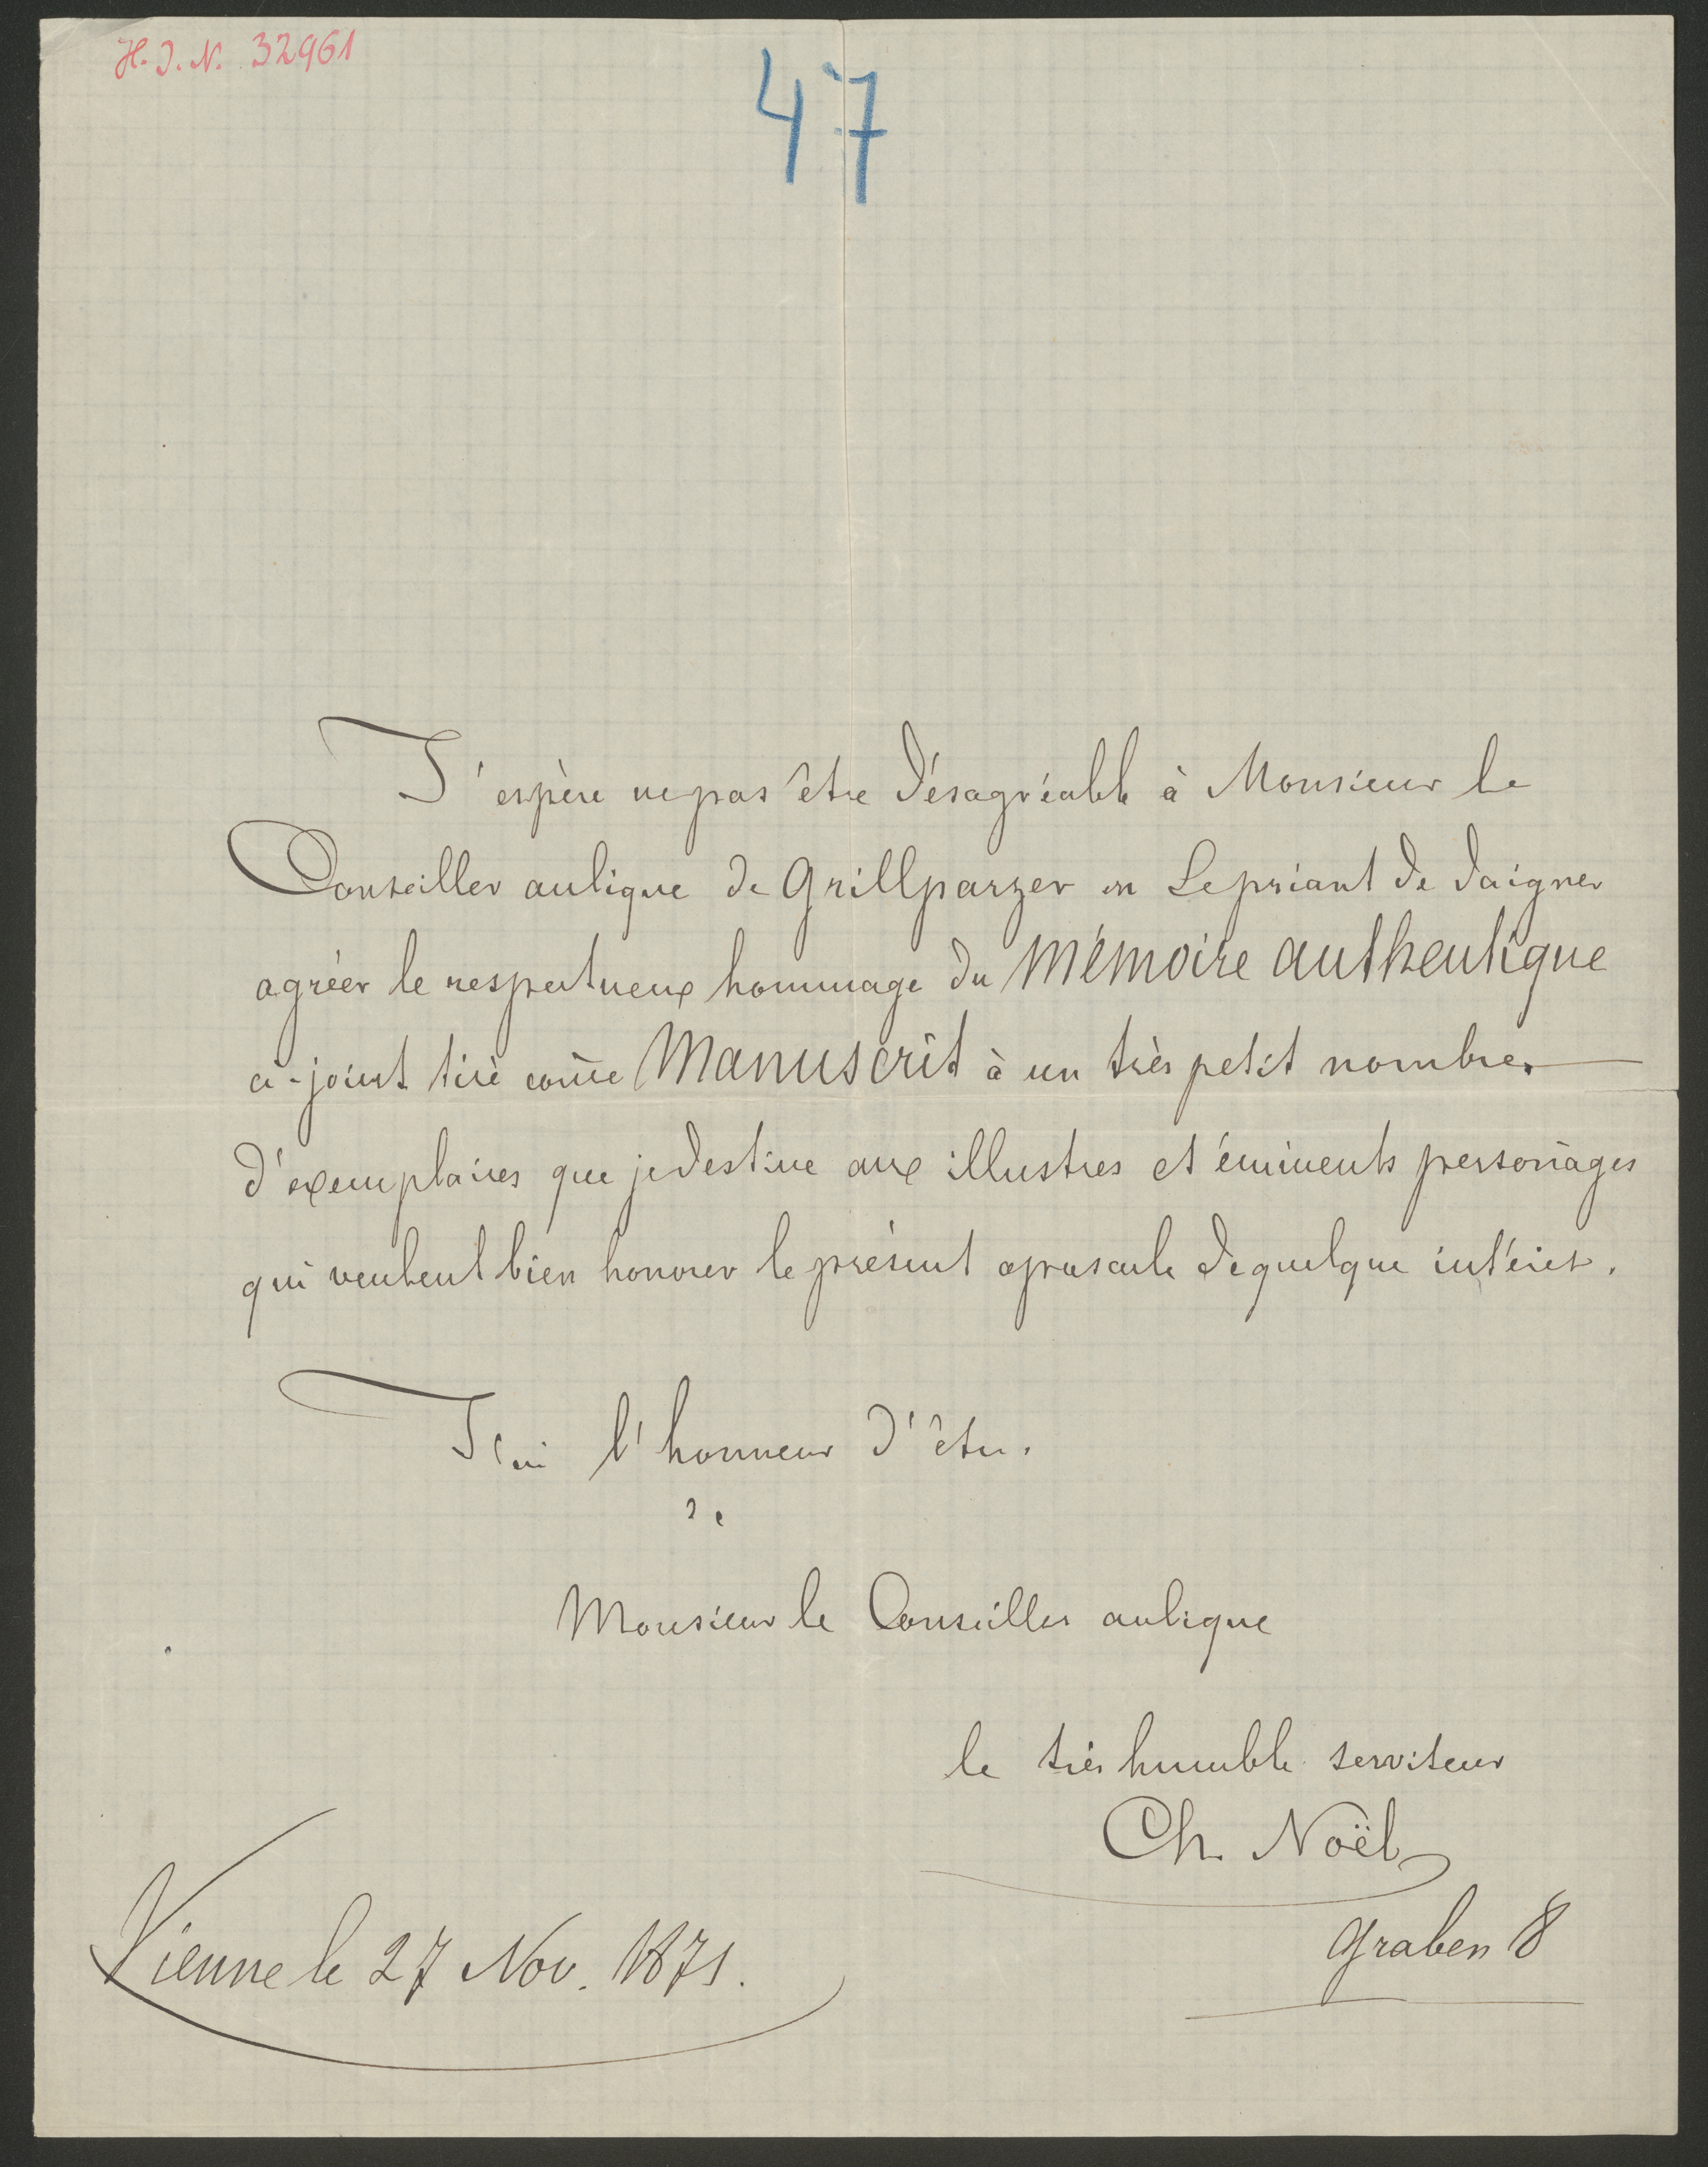 H. I. N. 32961
47
J'espère ne pas être désagréable à Monsieur le
Conseiller aulique de Grillparzer en Le priant de daigner
agréer le respectueux hommage du Mémoire authentique
ci-joint tiré com̄e Manuscrit à un très petit nombre
d'exemplaires que je destine aux illustres et éminents person̄ages
qui veulent bien honorer le présent opuscule de quelque intérêt.
J'ai l'honneur d'être.
Monsieur le Conseiller aulique
le très humble serviteur
Ch. Noël
Graben 8
Vienne le 27 Nov. 1871.